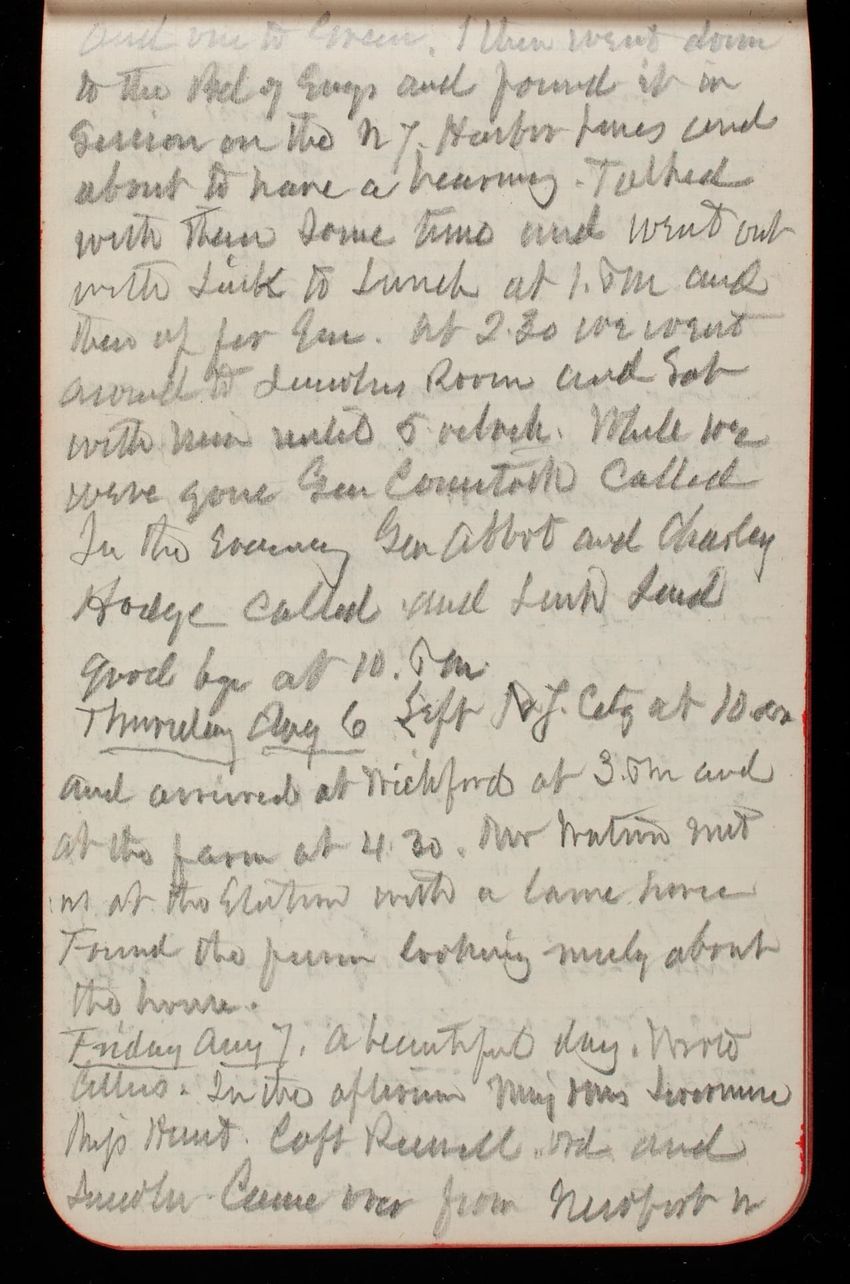 and one to Green. I then went down
to the Bd of Engs and found it in
Session on the N Y. Harbor lines and
about to have a hearing. Talked
with them some time and went out
with Link to Lunch at 1. P m and
then up for Gen. at 2.30 we went
around to Lincolns Room and Sat
with him until 5 oclock. While we
were gone Gen Comstock Called
In the evening Gen Abbot and Charley
Hodge called and Link Said
good bye at 10. P m.
Thursday Aug 6 Left N.Y. City at 10 am
and arrived at Wickford at 3. P m and
at the farm at 4.30. Mr met
us at the Station with a lame horse
Found the farm looking nicely about
the house.
Friday Aug 7. A beautiful day. Wrote
letters. In the afternoon Maj Livermore
Miss Hunt. Capt Russell. and
Lincoln Came over from Newport in